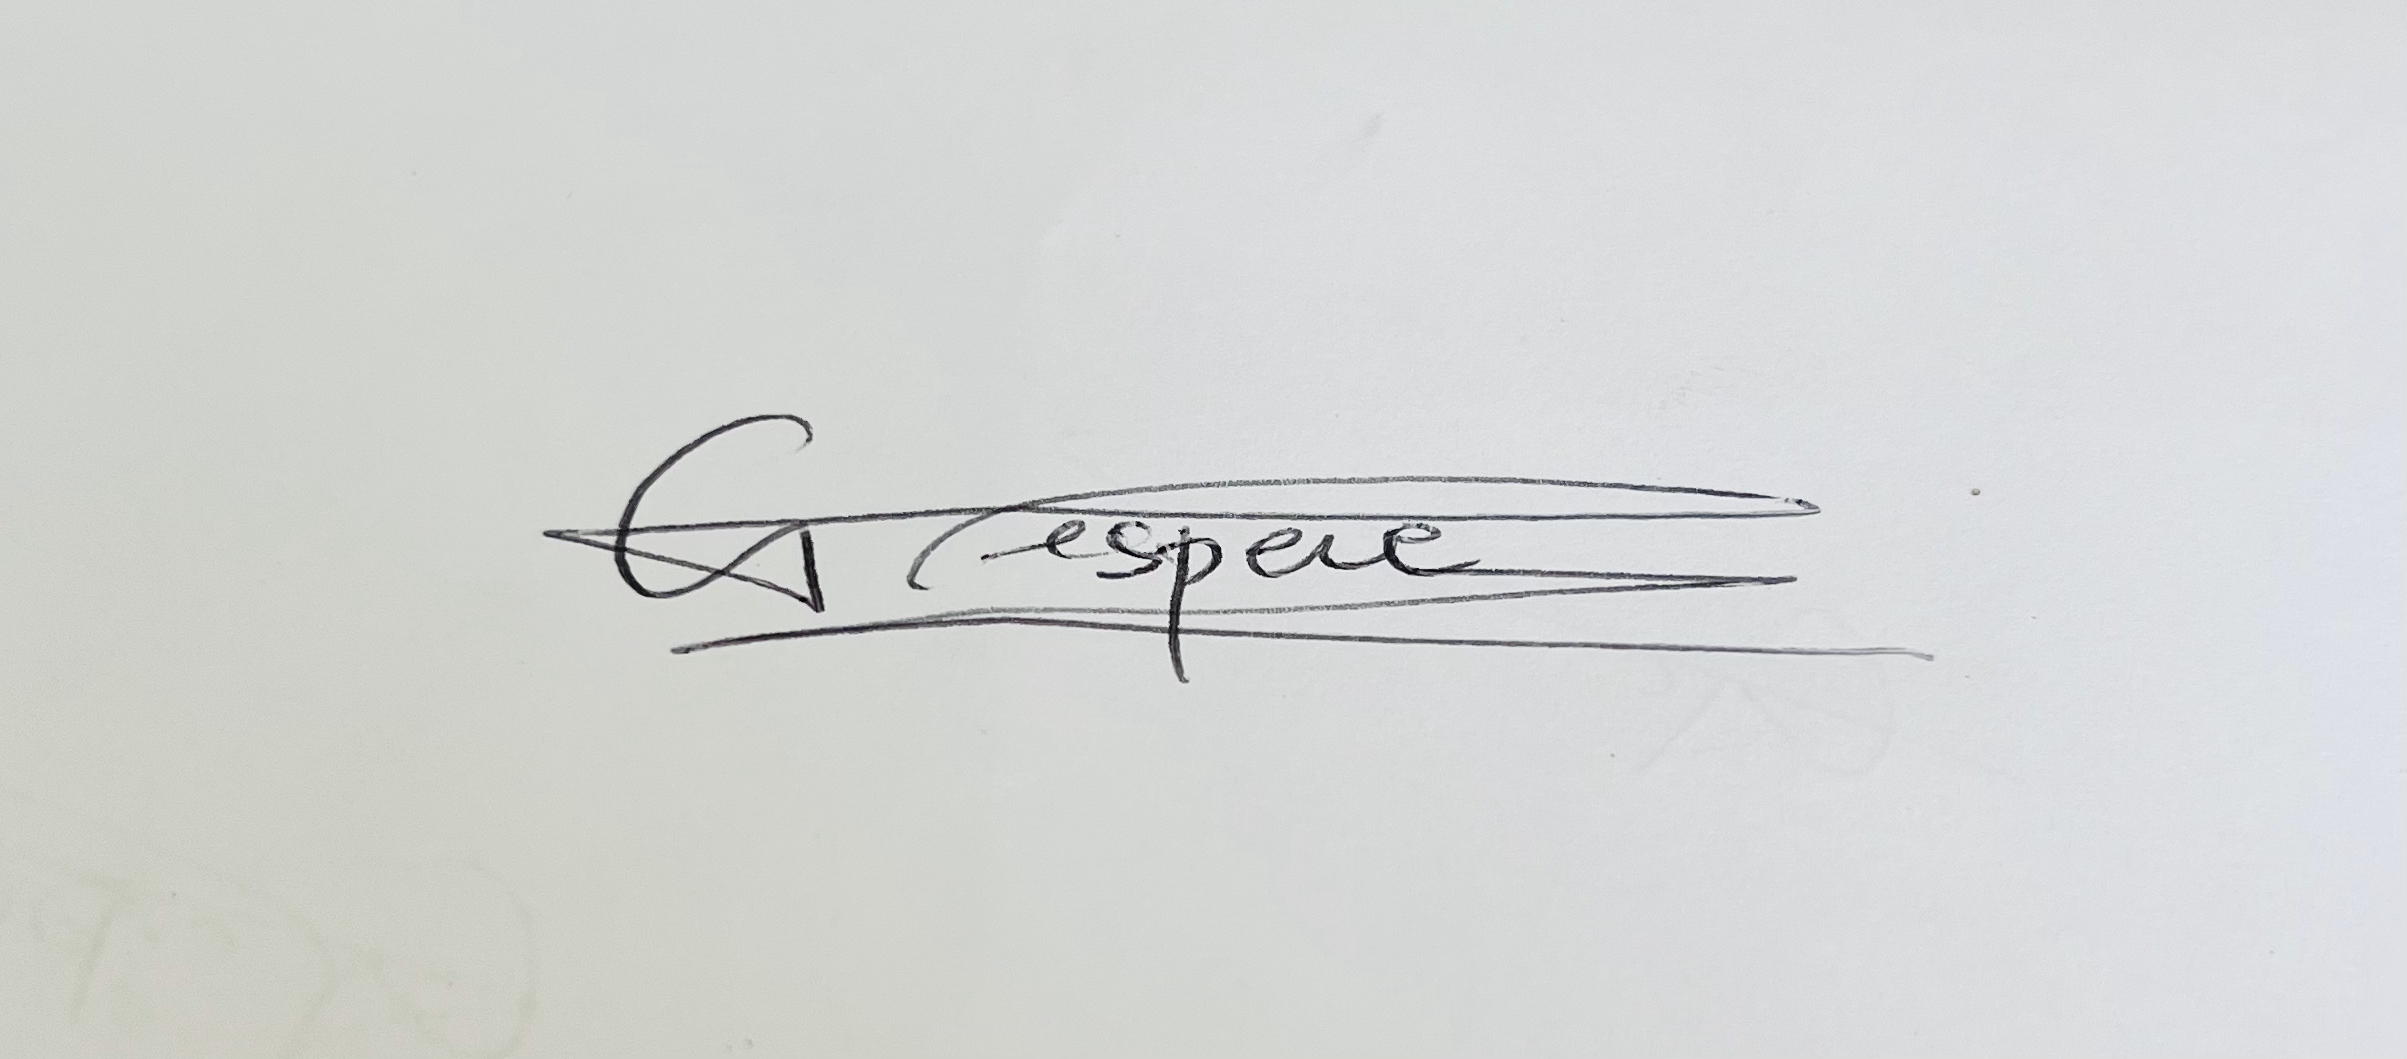 G Tespere